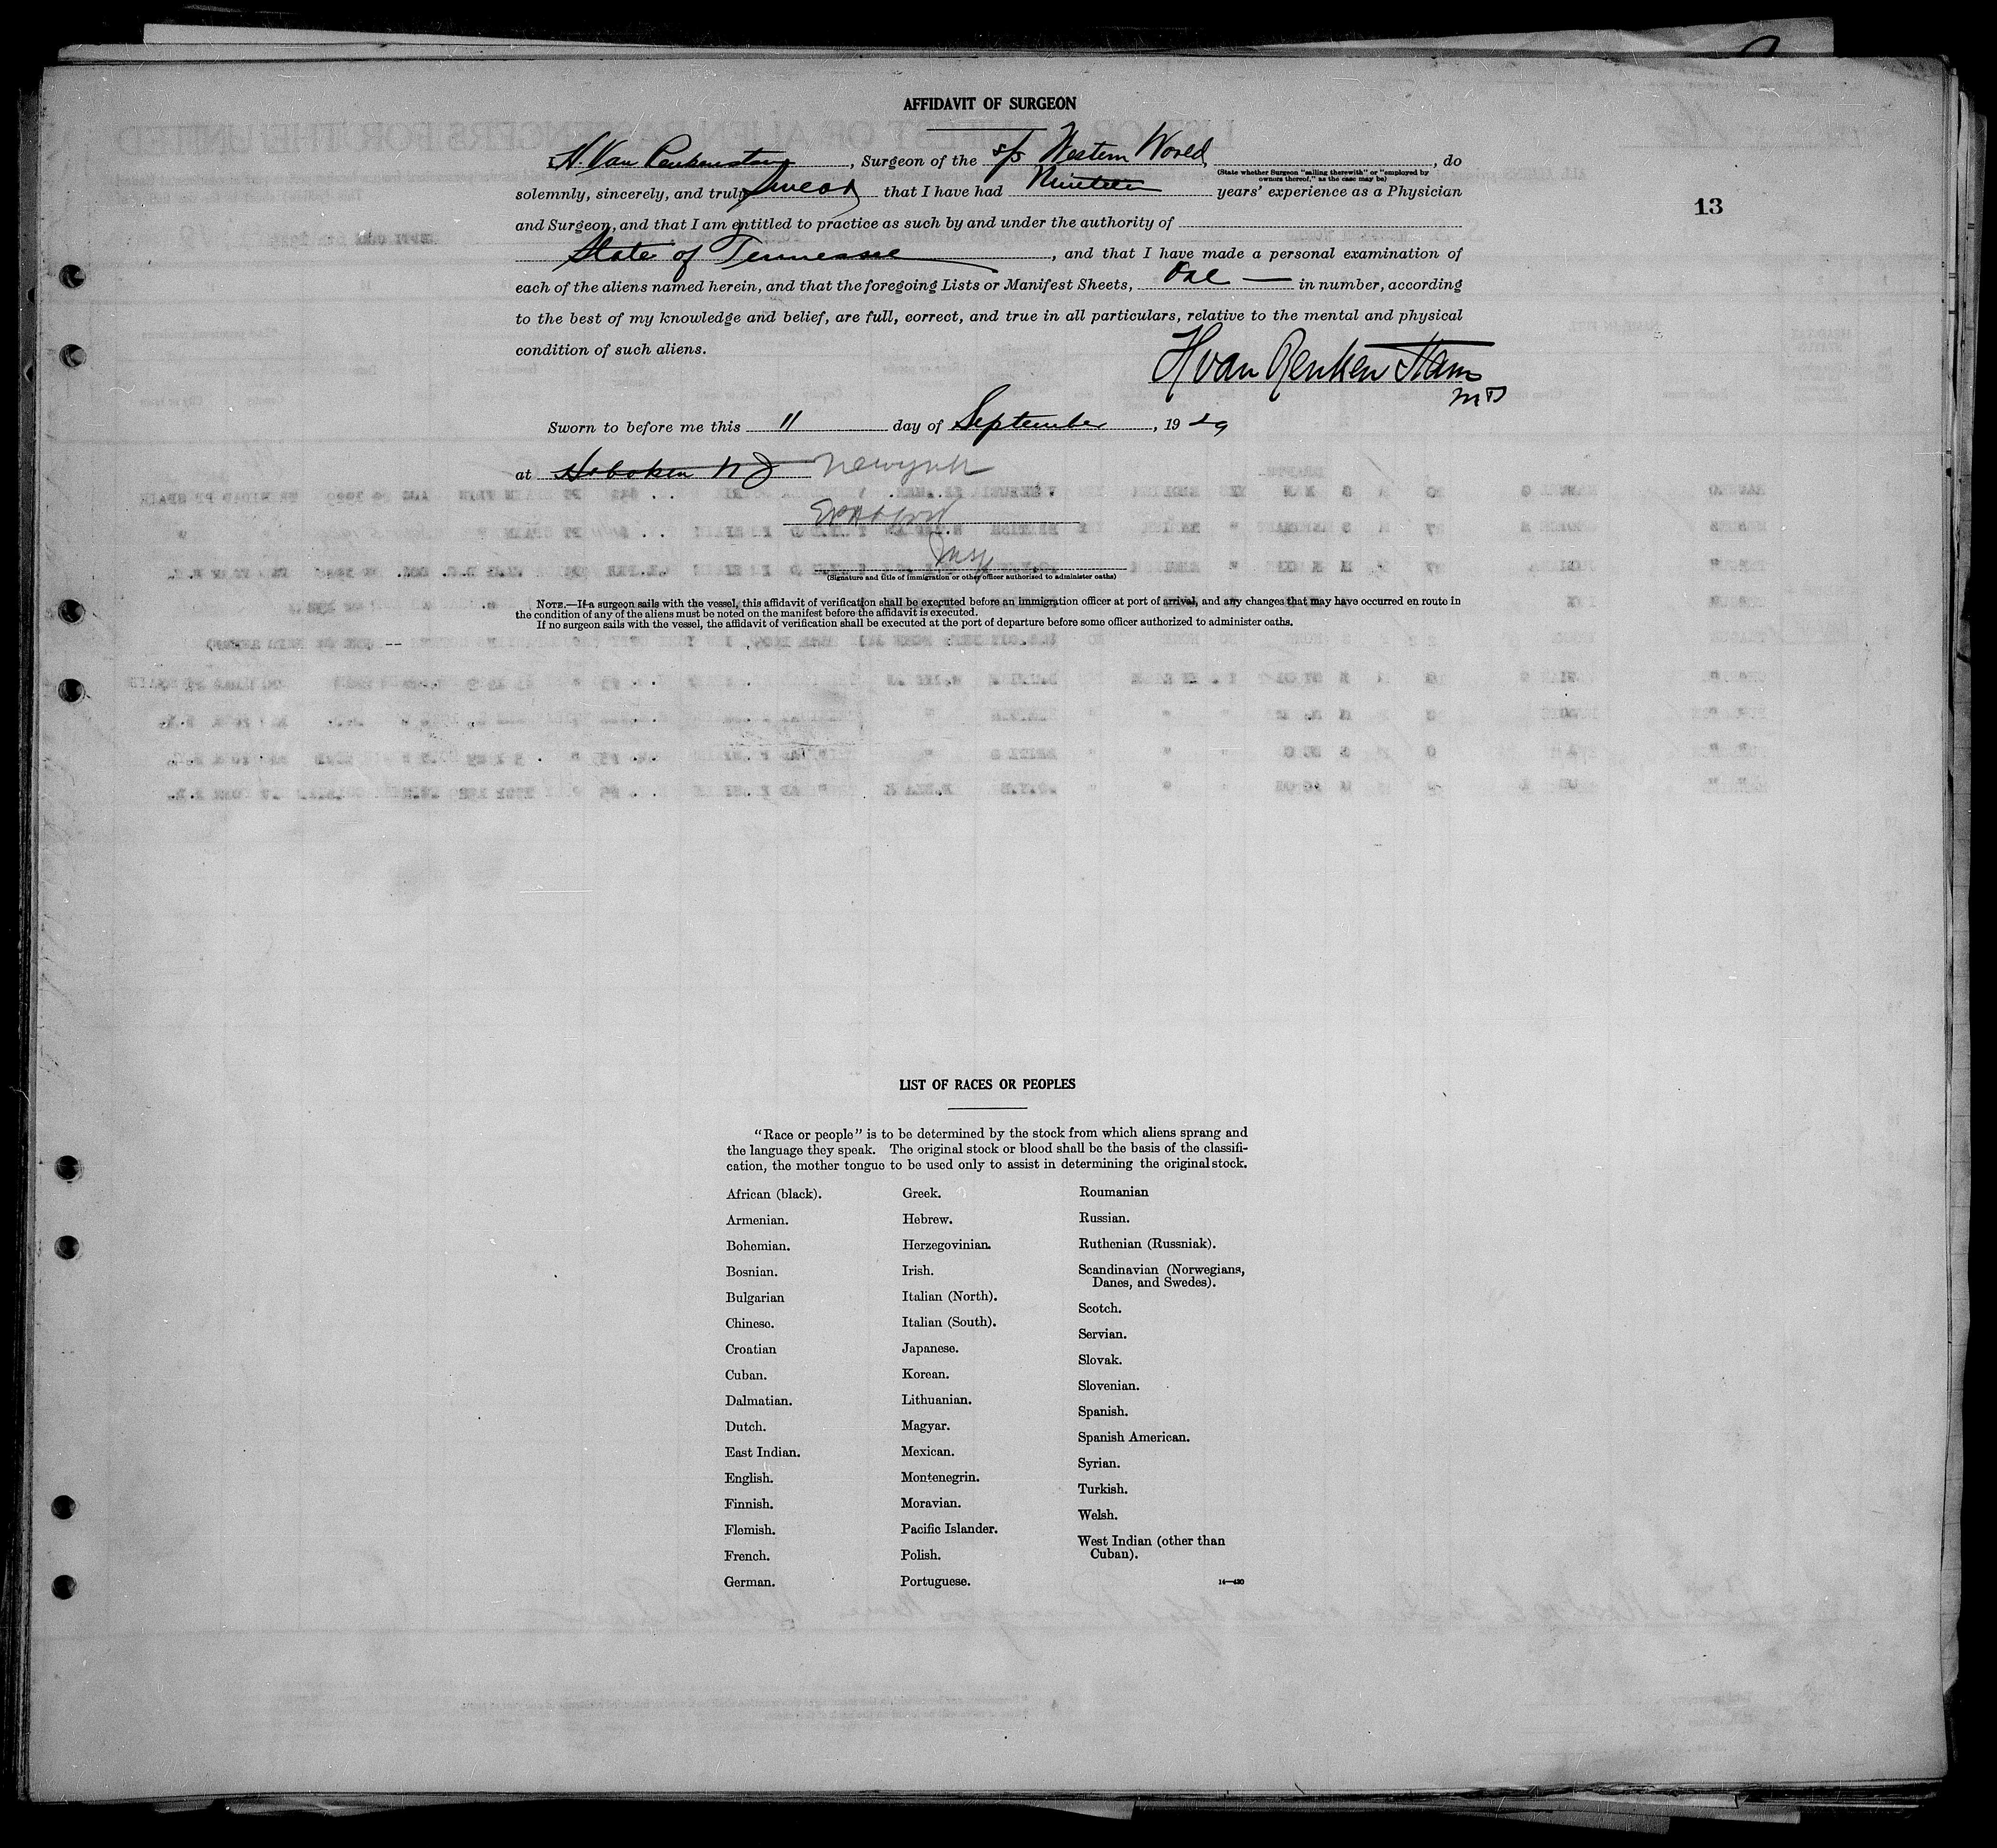 AFFIDAVIT OF SURGEON
I, H. Van , Surgeon of the s/s Western World, do
(State whether Surgeon "sailing therewith" or "employed by
owners thereof," as the case may be)
solemnly, sincerely, and truly swear that I have had Nineteen years' experience as a Physician
13
and Surgeon, and that I am entitled to practice as such by and under the authority of
State of Tennessee, and that I have made a personal examination of
each of the aliens named herein, and that the foregoing Lists or Manifest Sheets, One in number, according
to the best of my knowledge and belief, are full, correct, and true in all particulars, relative to the mental and physical
condition of such aliens.
H van Renken Stam
MD
Sworn to before me this 11 day of September, 1929
at Hoboken NJ New York
Insp
(Signature and title of immigration or other officer authorized to administer oaths)
NOTE.—If a surgeon sails with the vessel, this affidavit of verification shall be executed before an immigration officer at port of arrival, and any changes that may have occurred en route in
the condition of any of the aliens must be noted on the manifest before the affidavit is executed.
If no surgeon sails with the vessel, the affidavit of verification shall be executed at the port of departure before some officer authorized to administer oaths.
LIST OF RACES OR PEOPLES
"Race or people" is to be determined by the stock from which aliens sprang and
the language they speak. The original stock or blood shall be the basis of the classifi-
cation, the mother tongue to be used only to assist in determining the original stock.
African (black).
Armenian.
Bohemian.
Bosnian.
Bulgarian
Chinese.
Croatian
Cuban.
Dalmatian.
Dutch.
East Indian.
English.
Finnish.
Flemish.
French.
German.
Greek.
Hebrew.
Herzegovinian.
Irish.
Italian (North).
Italian (South).
Japanese.
Korean.
Lithuanian.
Magyar.
Mexican.
Montenegrin.
Moravian.
Pacific Islander.
Polish.
Portuguese.
Roumanian
Russian.
Ruthenian (Russniak).
Scandinavian (Norwegians,
Danes, and Swedes).
Scotch.
Servian.
Slovak.
Slovenian.
Spanish.
Spanish American.
Syrian.
Turkish.
Welsh.
West Indian (other than
Cuban).
14—430